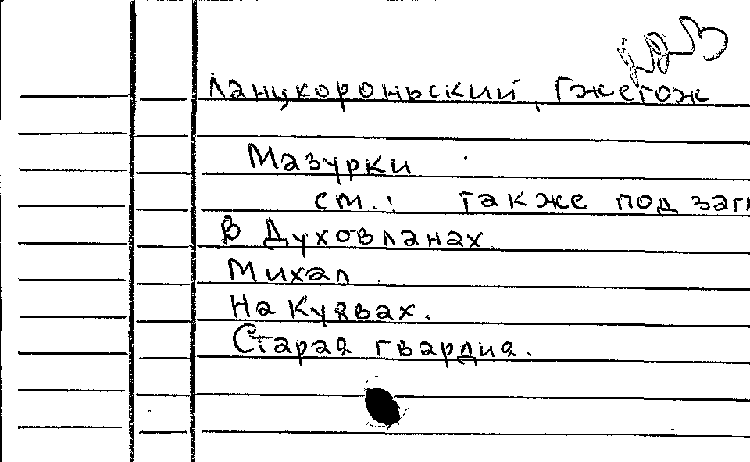 Ланцкороньский, Гжегож
Мазурки
см.: также под заг
В Духовланах.
Михал
На Куявах.
Старая гвардия.